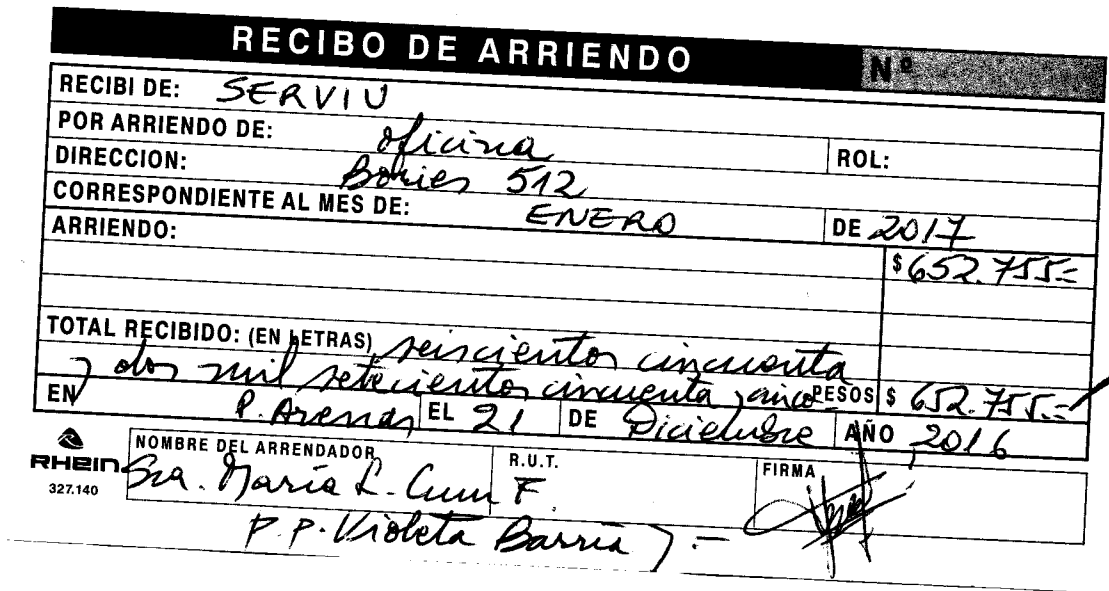 RECIBO DE ARRIENDO Nº
RECIBI DE: SERVIU
POR ARRIENDO DE: oficina ROL:
DIRECCION: Bories 512
CORRESPONDIENTE AL MES DE: ENERO DE 2017
ARRIENDO: $ 652.755.=
TOTAL RECIBIDO: (EN LETRAS) seiscientos cincuenta
y dos mil setecientos cincuenta y cinco.- PESOS $ 652.755.-
EN P. Arenas EL 21 DE Diciembre AÑO 2016
RHEIN NOMBRE DEL ARRENDADOR R.U.T. FIRMA
327.140 Sra. María L. Cum F.
P.P. Violeta Barría ).-